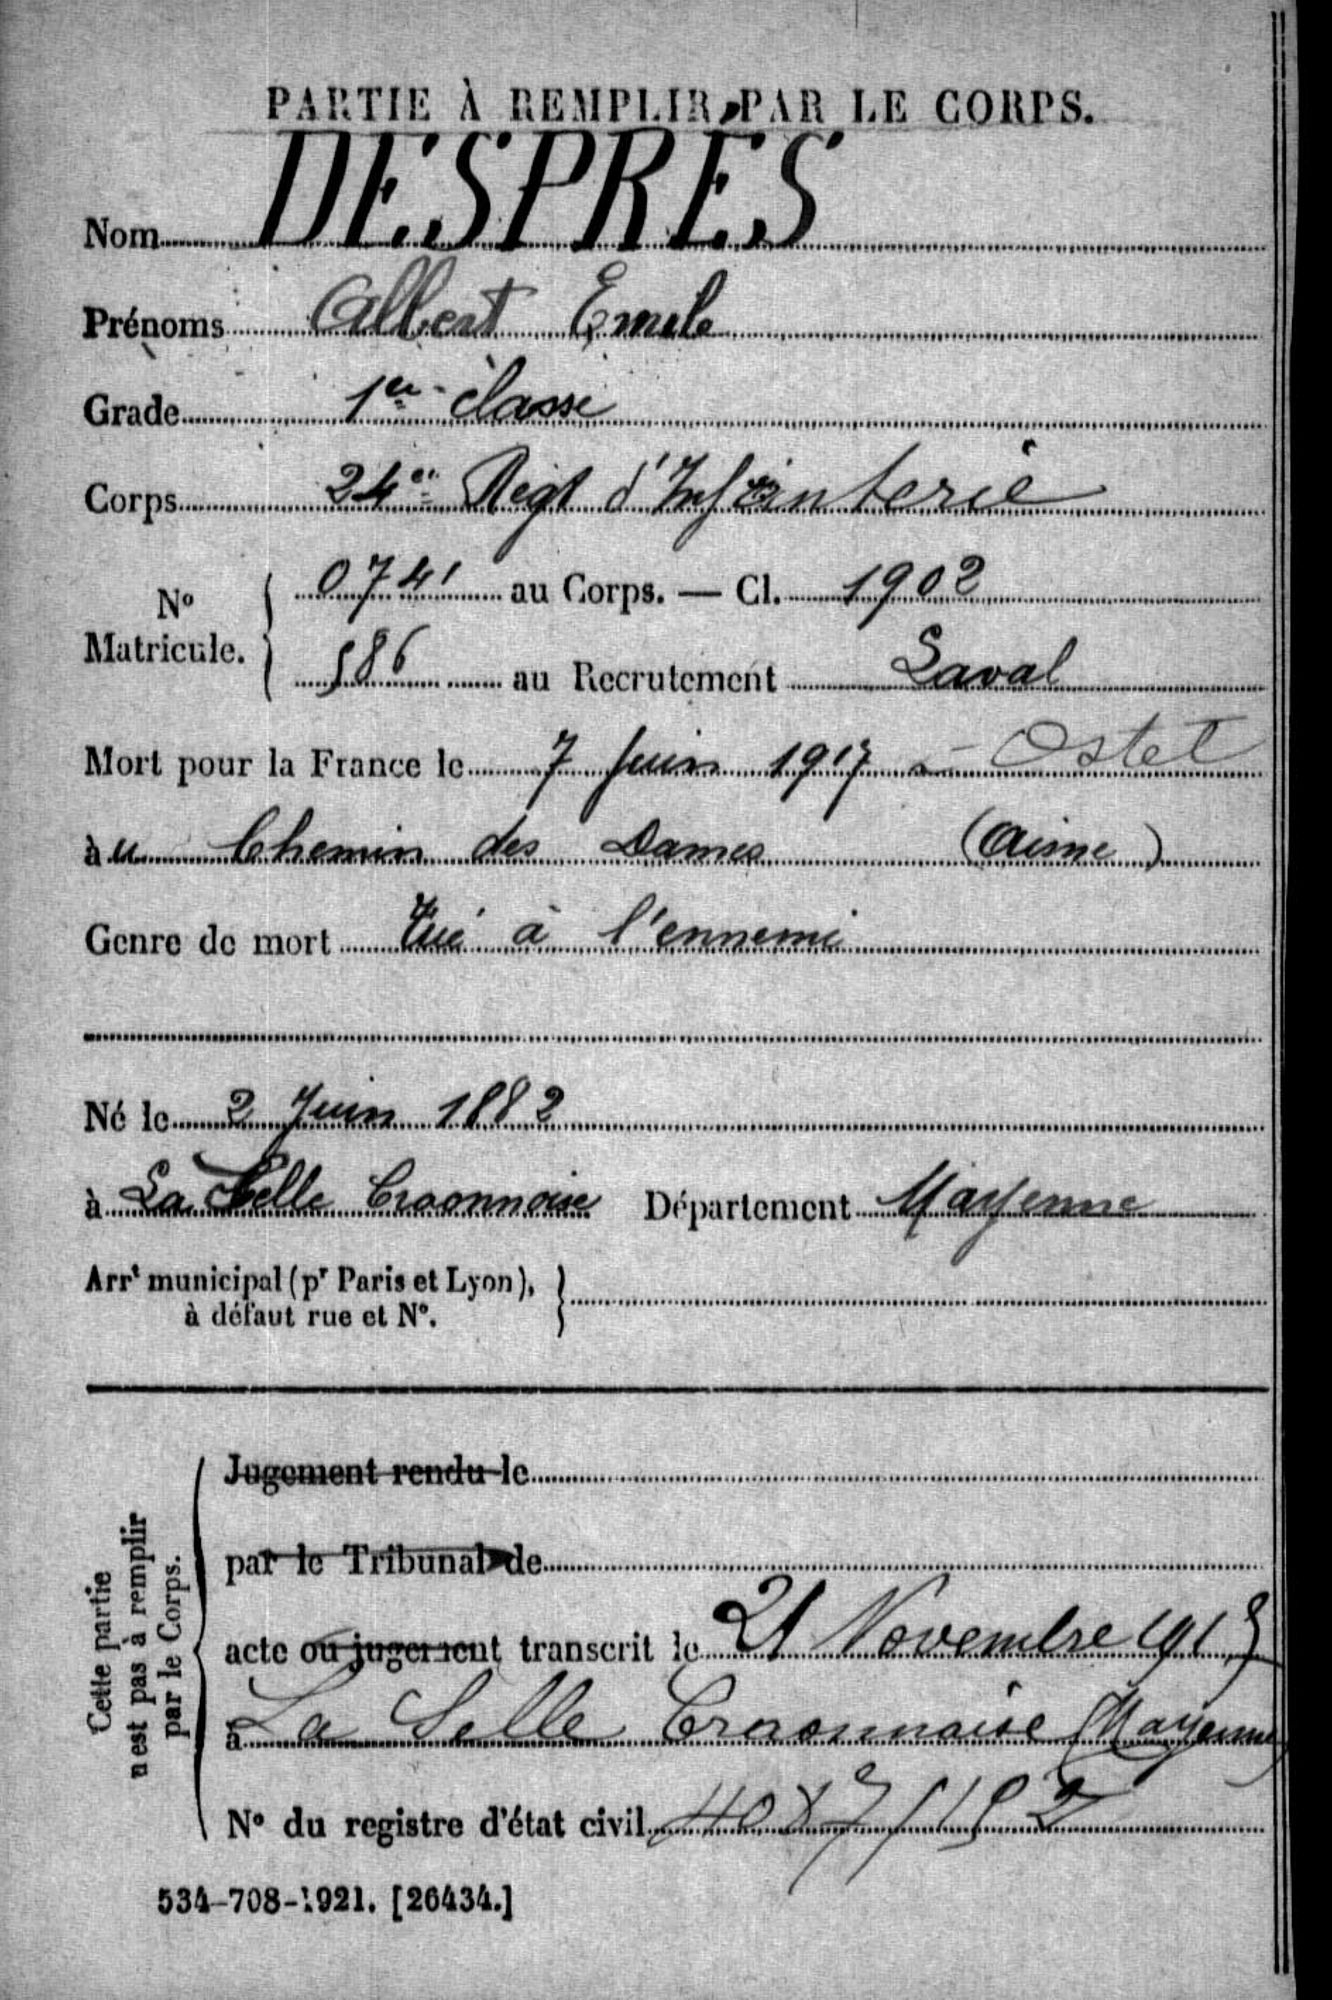 PARTIE À REMPLIR PAR LE CORPS.
Nom DESPRES
Prénoms Albert Emile
Grade 1er classe
Corps 24e Régt d'Infanterie
No Matricule. 0741 au Corps. — Cl. 1902
586 au Recrutement Laval
Mort pour la France le 7 Juin 1917 - Ostel
àu Chemin des Dames (Aisne)
Genre de mort Tué à l'ennemi
Né le 2 Juin 1882
à La Selle Craonnaise Département Mayenne
Arrt municipal (pr Paris et Lyon),
à défaut rue et No.
Cette partie
n'est pas à remplir
par le Corps.
Jugement rendu le
par le Tribunal de
acte ou jugement transcrit le 21 Novembre
à La Selle Craonnaise (Mayenne)
No du registre d'état civil
534-708-1921. [26434.]